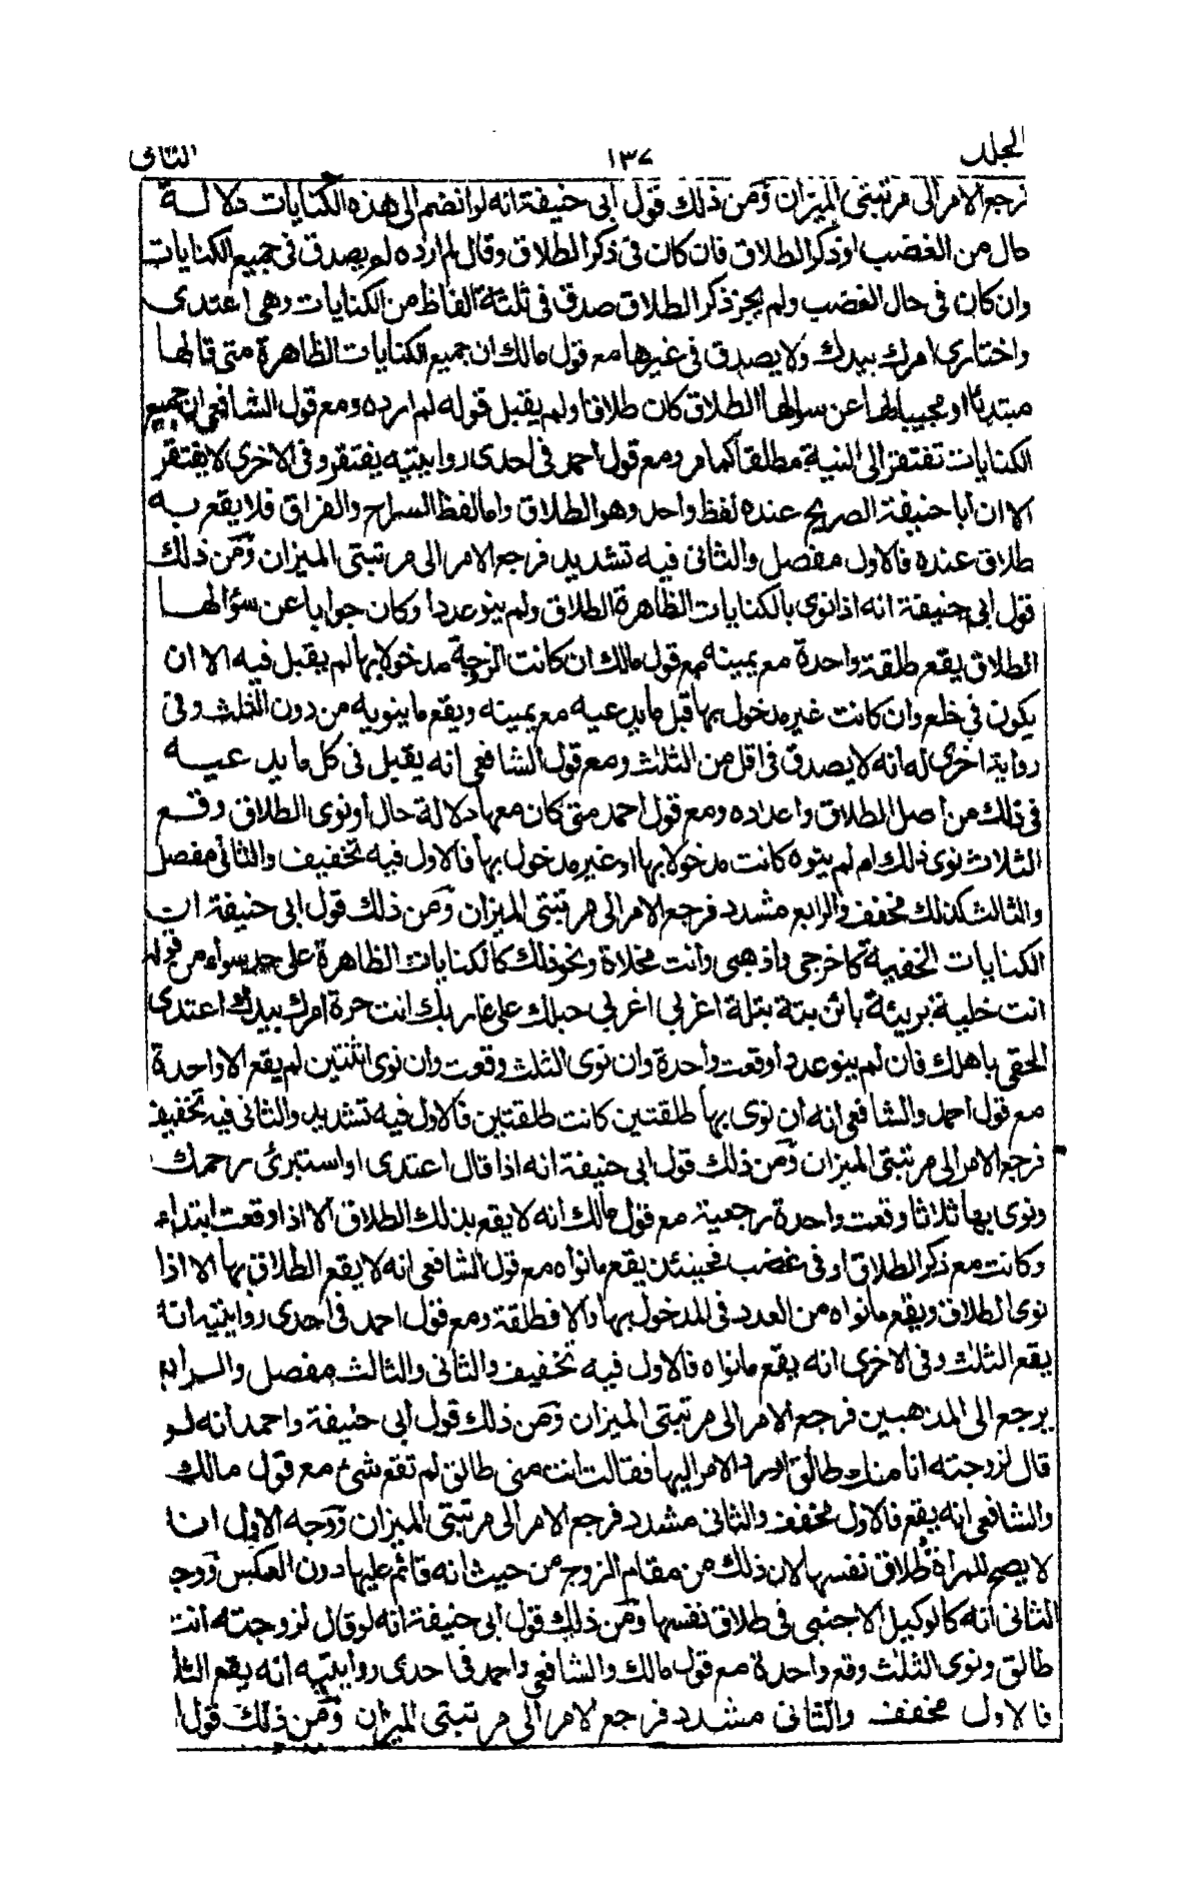 المجلد ١٣٧ الثانى
فرجع الامر الى مرتبتى الميزان ومن ذلك قول ابى حنيفة انه لو انضم الى هذه الكنايات دلالة
حال من الغضب او ذكر الطلاق فان كان فى ذكر الطلاق وقال لم ارده لم يصدق فى جميع الكنايات
وان كان فى حال الغضب ولم يجز ذكر الطلاق صدق فى ثلثة الفاظ من الكنايات وهى اعتدى
واختارى امرك بيدك ولا يصدق فى غيرها مع قول مالك ان جميع الكنايات الظاهرة متى قالها
مبتدئا او مجيبا لها عن سوالها الطلاق كان طلاقا ولم يقبل قوله لم ارده ومع قول الشافعى ان جميع
الكنايات تفتقر الى النية مطلقا كما مر ومع قول احمد فى احدى روايتيه يفتقر وفى الاخرى لا يفتقر
الا ان أبا حنيفة الصريح عنده لفظ واحد وهو الطلاق واما لفظ السراح والفراق فلا يقع به
طلاق عنده فالاول مفصل والثانى فيه تشديد فرجع الامر الى مرتبتى الميزان ومن ذلك
قول ابى حنيفة انه اذا نوى بالكنايات الظاهرة الطلاق ولم ينو عددا وكان جوابا عن سؤالها
الطلاق يقع طلقة واحدة مع يمينه مع قول مالك ان كانت الزوجة مدخولا بها لم يقبل فيه الا ان
يكون فى خلع وان كانت غير مدخول بها قبل ما يدعيه مع يمينه ويقع ما ينويه من دون الثلث وفى
رواية اخرى له انه لا يصدق فى اقل من الثلاث ومع قول الشافعى انه يقبل فى كل ما يدعيه
فى ذلك من أصل الطلاق واعداده ومع قول احمد متى كان معها دلالة حال أو نوى الطلاق وقع
الثلاث نوى ذلك ام لم ينوه كانت مدخولا بها او غير مدخول بها فالاول فيه تخفيف والثانى مفصل
والثالث كذلك مخفف والرابع مشدد فرجع الامر الى مرتبتى الميزان ومن ذلك قول ابى حنيفة ان
الكنايات الخفية كاخرجى واذهبى وأنت مخلاة ونحو ذلك كالكنايات الظاهرة على حد سواء من قوله
انت خلية بريئة بائن بتة بتلة اغربى اغربى حبلك على غاربك انت حرة امرك بيدك اعتدى
الحقى باهلك فان لم ينو عددا وقعت واحدة وان نوى الثلث وقعت وان نوى اثنتين لم يقع الا واحدة
مع قول احمد والشافعى انه ان نوى بها طلقتين كانت طلقتين فالاول فيه تشديد والثانى فيه تخفيف
فرجع الامر الى مرتبتى الميزان ومن ذلك قول ابى حنيفة انه اذا قال اعتدى او استبرئى رحمك
ونوى بها ثلاثا وقعت واحدة رجعية مع قول مالك انه لا يقع بذلك الطلاق الا اذا وقعت ابتداء
وكانت مع ذكر الطلاق او فى غضب فحينئذ يقع ما نواه مع قول الشافعى انه لا يقع الطلاق بها الا اذا
نوى الطلاق ويقع ما نواه من العدد فى المدخول بها والا فطلقة ومع قول احمد فى احدى روايتيه انه
يقع الثلاث وفى الاخرى انه يقع ما نواه فالاول فيه تخفيف والثانى والثالث مفصل والرابع
يرجع الى المذهبين فرجع الامر الى مرتبتى الميزان ومن ذلك قول ابى حنيفة واحمد انه لو
قال لزوجته انا منك طالق الامر اليها فقالت انت منى طالق لم تقع شئ مع قول مالك
والشافعى انه يقع فالاول مخفف والثانى مشدد فرجع الامر الى مرتبتى الميزان ووجه الاول انه
لا يصح للمرأة طلاق نفسها لان ذلك من مقام الزوج من حيث انه قائم عليها دون العكس ووجه
الثانى أنه كالوكيل الاجنبى فى طلاق نفسها ومن ذلك قول ابى حنيفة انه لو قال لزوجته أنت
طالق ونوى الثلث وقع واحدة مع قول مالك والشافعى واحمد فى احدى روايتيه انه يقع الثلا
فالاول مخفف والثانى مشدد فرجع الامر الى مرتبتى الميزان ومن ذلك قول ا